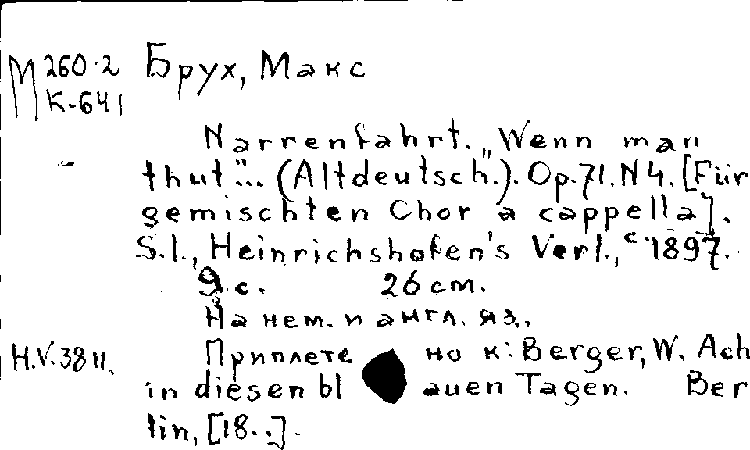 М 260.2 Брух, Макс
К-641
Narrenfahrt. „Wenn man
thut"... (Altdeutsch.). Op.71. N4. [Für
gemischten Chor a cappella].
S.l., Heinrichshofen's Verl., c. 1897.
9 с. 26 cm.
На нем. и англ. яз.
H.V.3811. Приплетено к: Berger, W. Ach
in diesen blauen Tagen. Ber
lin, [18..].